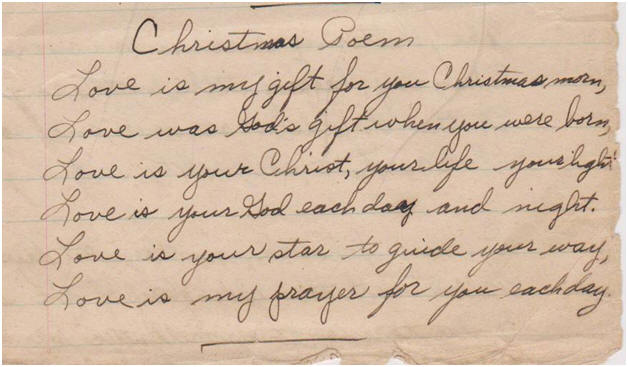 Christmas Poem
Love is my gift for you Christmas morn,
Love was God's gift when you were born,
Love is your Christ, your life your light
Love is your God each day and night.
Love is your star to guide your way,
Love is my prayer for you each day.